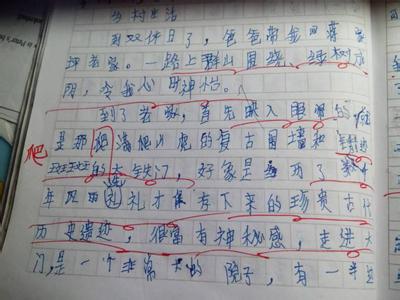 乡村生活
到双休日了，爸爸带我回
老家。一路上群山围绕，绿树成
阴，令我心旷神怡。
到了老家，首先映入眼的
是那满爬山虎的复古围墙和
的大铁门，好象是经历了数
年的洗礼才保存下来的珍贵古代
历史遗迹，很富有神秘感，走进大
门，是一个非常大的院子，有一半
爬